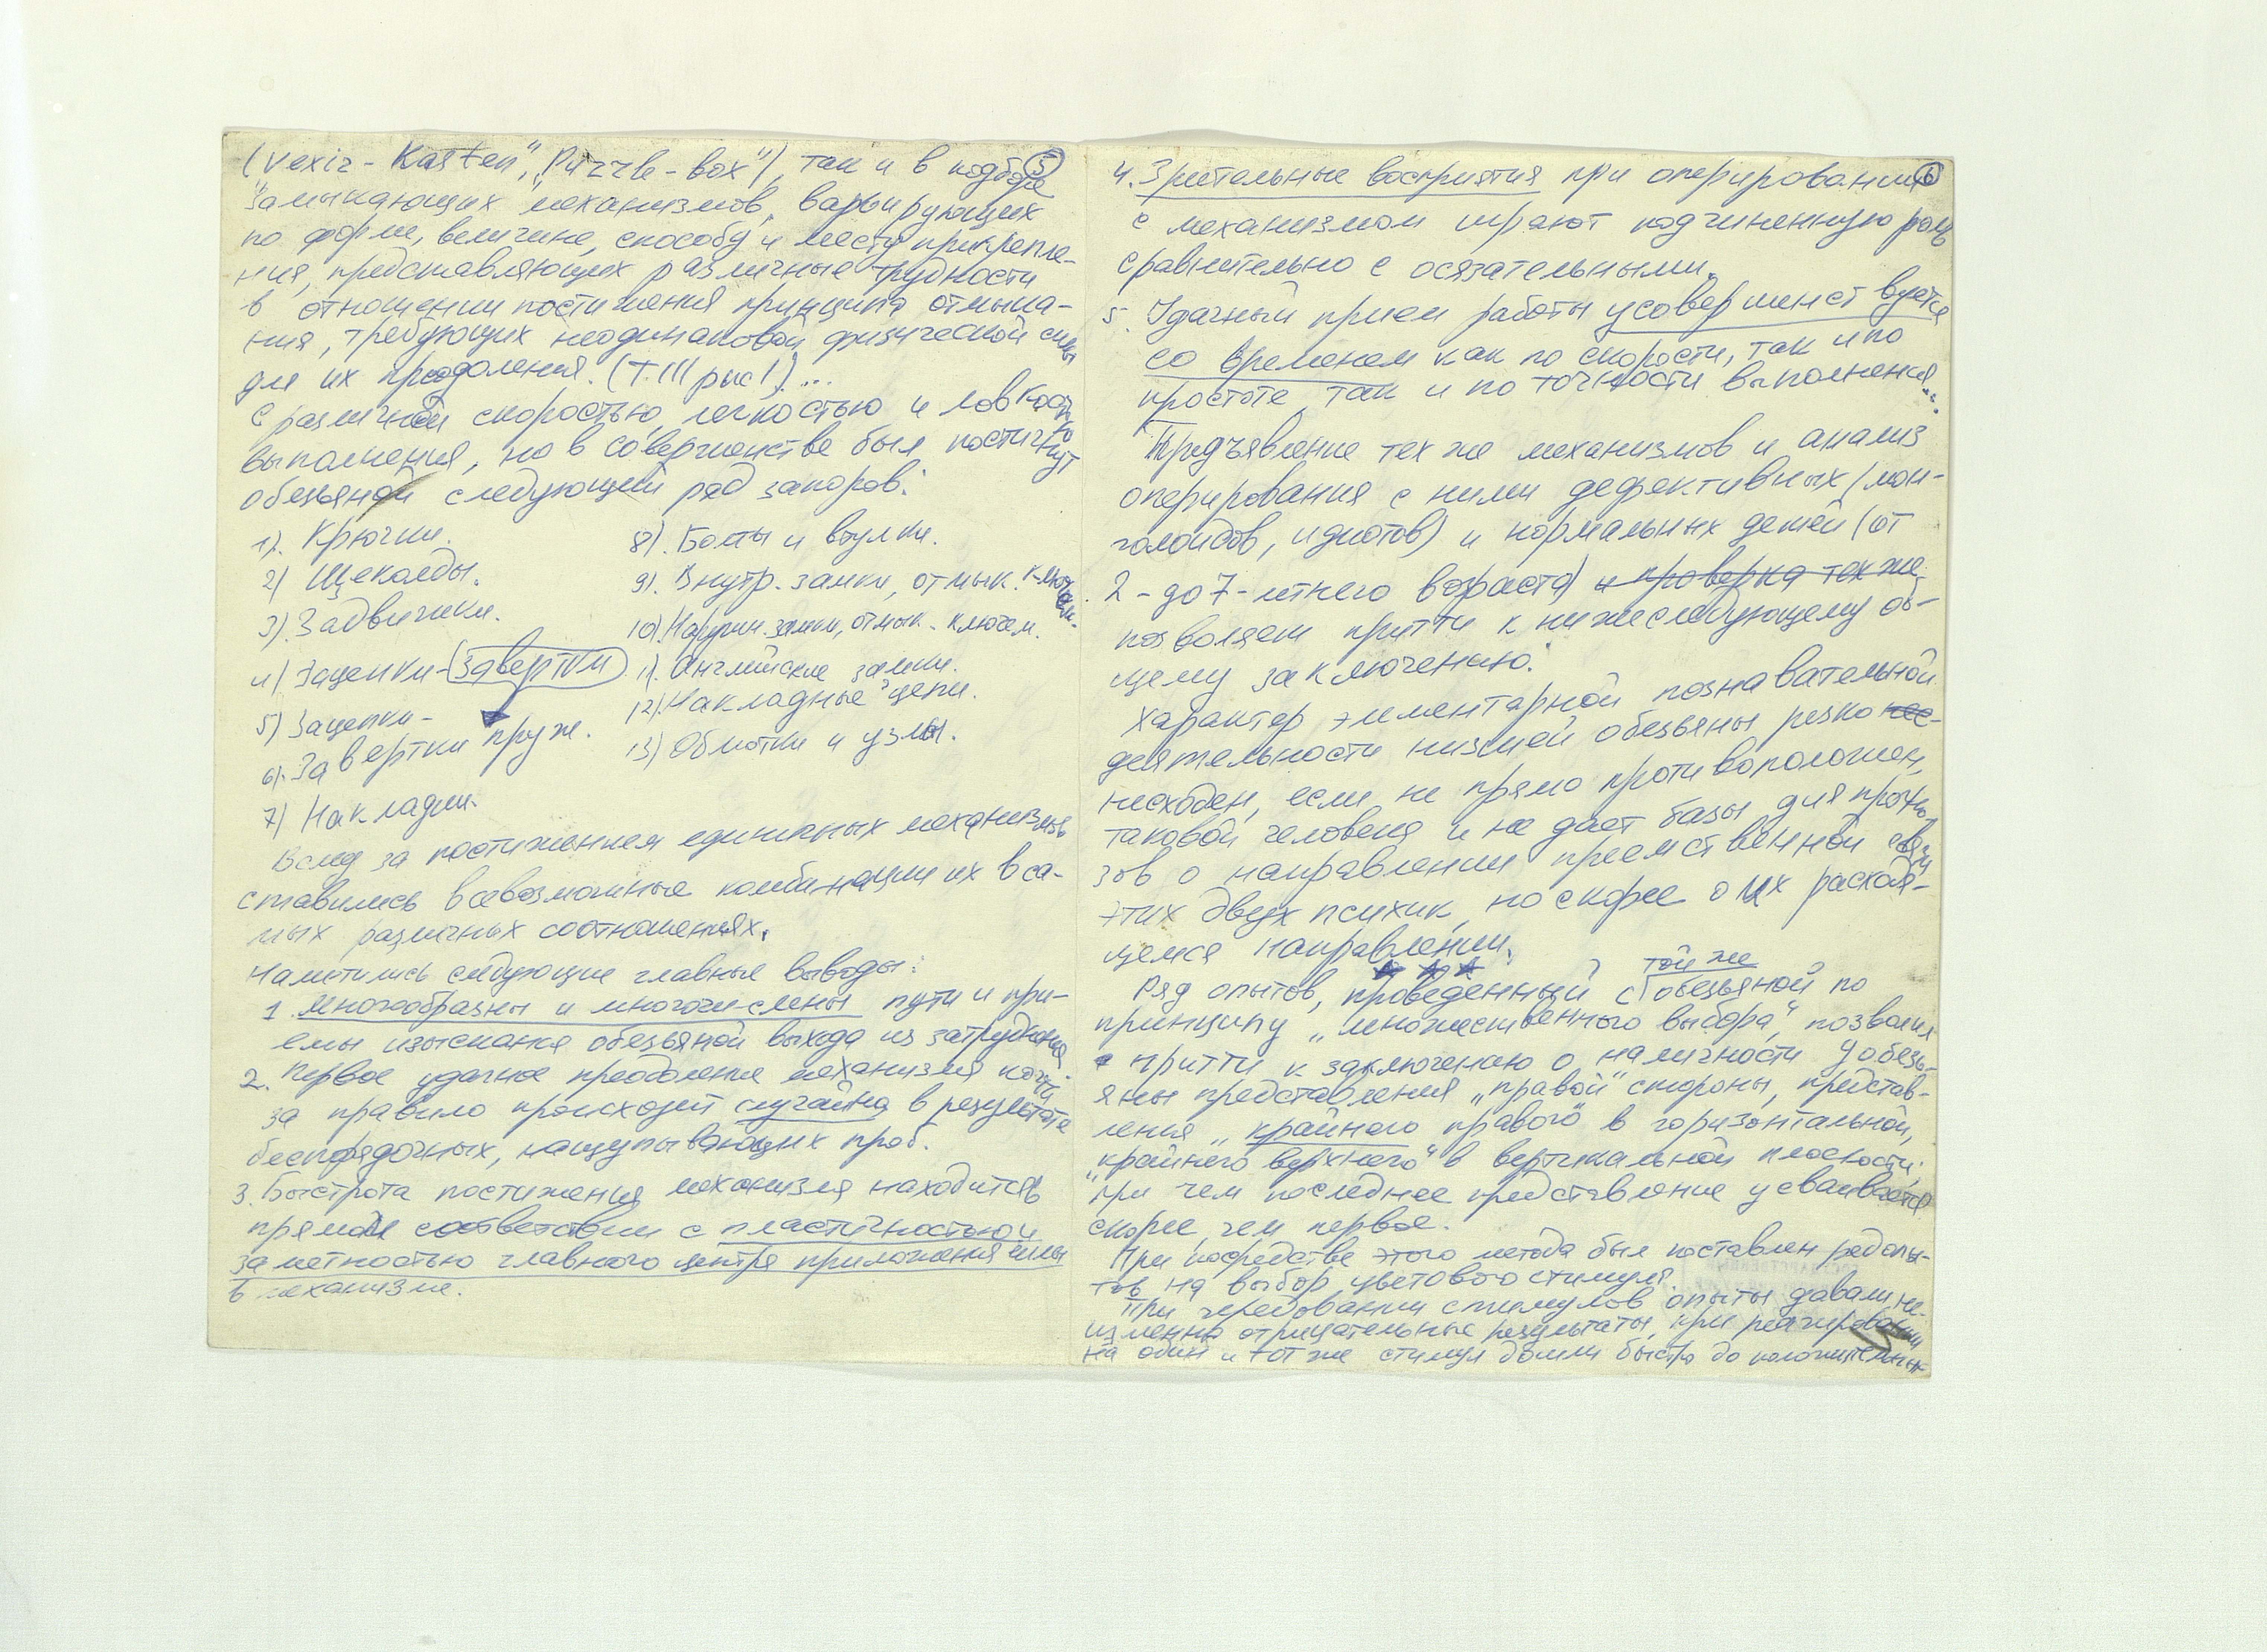 (5)
(Vexir-Kasten", „Puzzle-box"), так и в подборе
замыкающих механизмов, варьирующих
по форме, величине, способу и месту прикрепле-
ния, представляющих различные трудности
в отношении постижения принципа отмыка-
ния, требующих неодинаковой физической силы
для их преодоления. (Т.III рис 1)...
С различной скоростью, легкостью и ловкостью
выполнения, но в совершенстве был постигнут
обезьяной следующий ряд запоров:
1). Крючки.
2) Щеколды.
3). Задвижки.
4) Зацепки-завертки
5) Зацепки-
6). Завертки пруж.
7) Накладки.
8). Болты и втулки.
9). Внутр. замки, отмык. ключами.
10). Наружн. замки, отмык. ключем.
11). Английские замки.
12). Накладные цепи.
13) Обмотки и узлы.
Вслед за постижением единичных механизмов
ставились всевозможные комбинации их в са-
мых различных соотношениях.
Наметились следующие главные выводы:
1. Многообразны и многочислены пути и при-
емы изыскания обезьяной выхода из затруднения.
2. Первое удачное преодоление механизма почти
за правило происходит случайно в результате
беспорядочных, нащупывающих проб.
3. Быстрота постижения механизма находится в
прямом соответствии с пластичностью и
заметностью главного центра приложения силы
в механизме.
(6)
4. Зрительные восприятия при оперировании
с механизмом играют подчиненную роль
сравнительно с осязательными.
5. Удачный прием работы усовершенствуется
со временем как по скорости, так и по
простоте, так и по точности выполнения...
Предъявление тех же механизмов и анализ
оперирования с ними дефективных (мон-
голоидов, идиотов) и нормальных детей (от
2-до 7-летнего возраста) и проверка тех же
позволяет притти к нижеследующему об-
щему заключению:
Характер элементарной познавательной
деятельности низшей обезьяны резко нес-
несходен, если не прямо противоположен,
таковой человека и не дает базы для прогно-
зов о направлении преемственной связи
этих двух психик, но скорее о их расходя-
щемся направлении.
Ряд опытов, проведенный с той же обезьяной по
принципу „множественного выбора", позволил
притти к заключению о наличности у обезь-
яны представления „правой" стороны, представ-
ления „крайнего правого" в горизонтальной,
„крайнего верхнего" в вертикальной плоскости;
при чем последнее представление усваивается
скорее, чем первое.
При посредстве этого метода был поставлен ряд опы-
тов на выбор цветового стимула.
При чередовании стимулов опыты давали не-
изменно отрицательные результаты, при реагировании
на один и тот же стимул дошли быстро до положительных